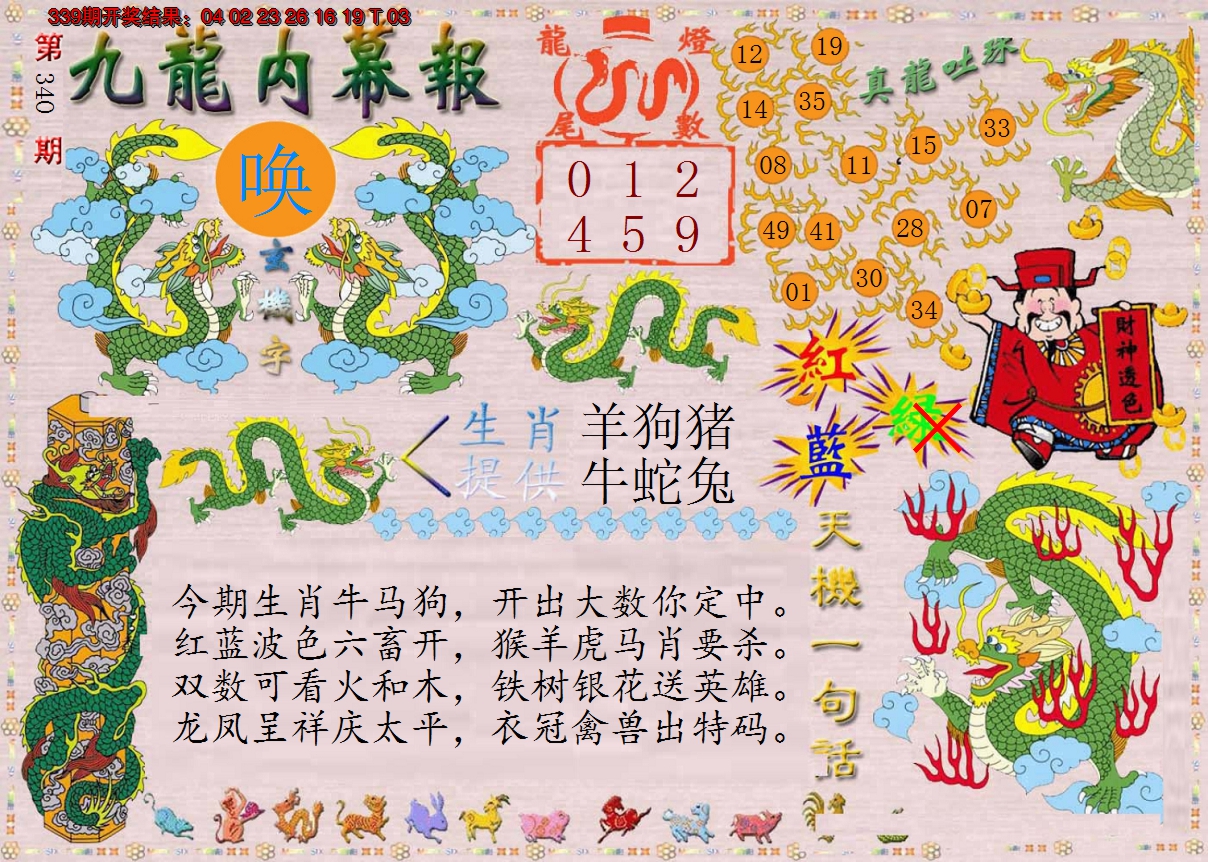 339期开奖结果：04 02 23 26 16 19 T 03
第340期
九龍内幕報
龍燈
尾數
0 1 2
4 5 9
真龍吐珠
12
19
14
35
33
15
08
11
07
49
41
28
30
01
34
唤
玄機字
財神透色
紅
綠
藍
生肖提供
羊狗猪
牛蛇兔
天機一句話
今期生肖牛马狗，开出大数你定中。
红蓝波色六畜开，猴羊虎马肖要杀。
双数可看火和木，铁树银花送英雄。
龙凤呈祥庆太平，衣冠禽兽出特码。